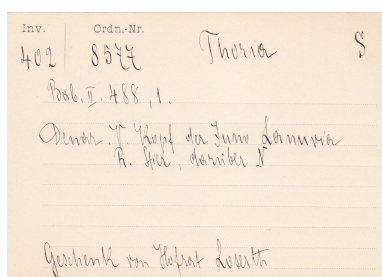 Inv. Ordn.-Nr.
402 8577 Thoria S
Bab. II. 488, 1.
Denar. V. Kopf der Juno Lanuvia
R. Stier, darüber N
Geschenk von Hofrat Loserth